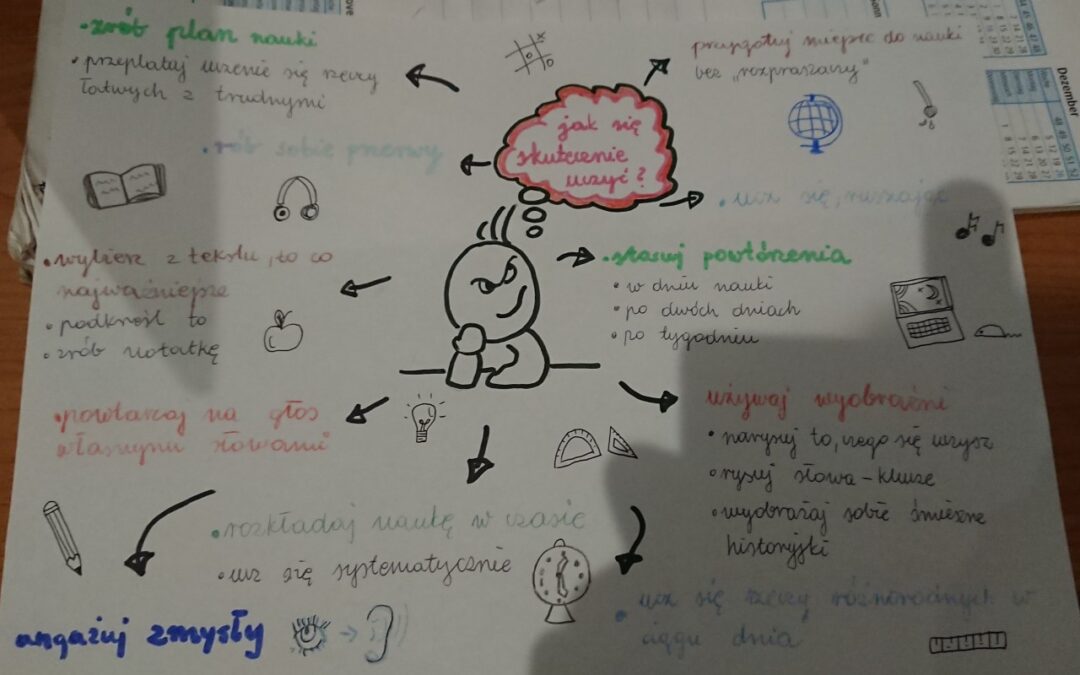 jak się
skutecznie
uczyć?
•zrób plan nauki
•przeplataj uczenie się rzeczy
łatwych z trudnymi
•rób sobie przerwy
przygotuj miejsce do nauki
bez „rozpraszaczy”
•ucz się, ruszając
•wybierz z tekstu, to co
najważniejsze
•podkreśl to
•zrób notatkę
•stosuj powtórzenia
•w dniu nauki
•po dwóch dniach
•po tygodniu
•powtarzaj na głos
własnymi słowami
używaj wyobraźni
•narysuj to, czego się uczysz
•rysuj słowa-klucze
•wyobrażaj sobie śmieszne
historyjki
•rozkładaj naukę w czasie
•ucz się systematycznie
angażuj zmysły
•ucz się rzeczy różnorodnych w
ciągu dnia
Dezember